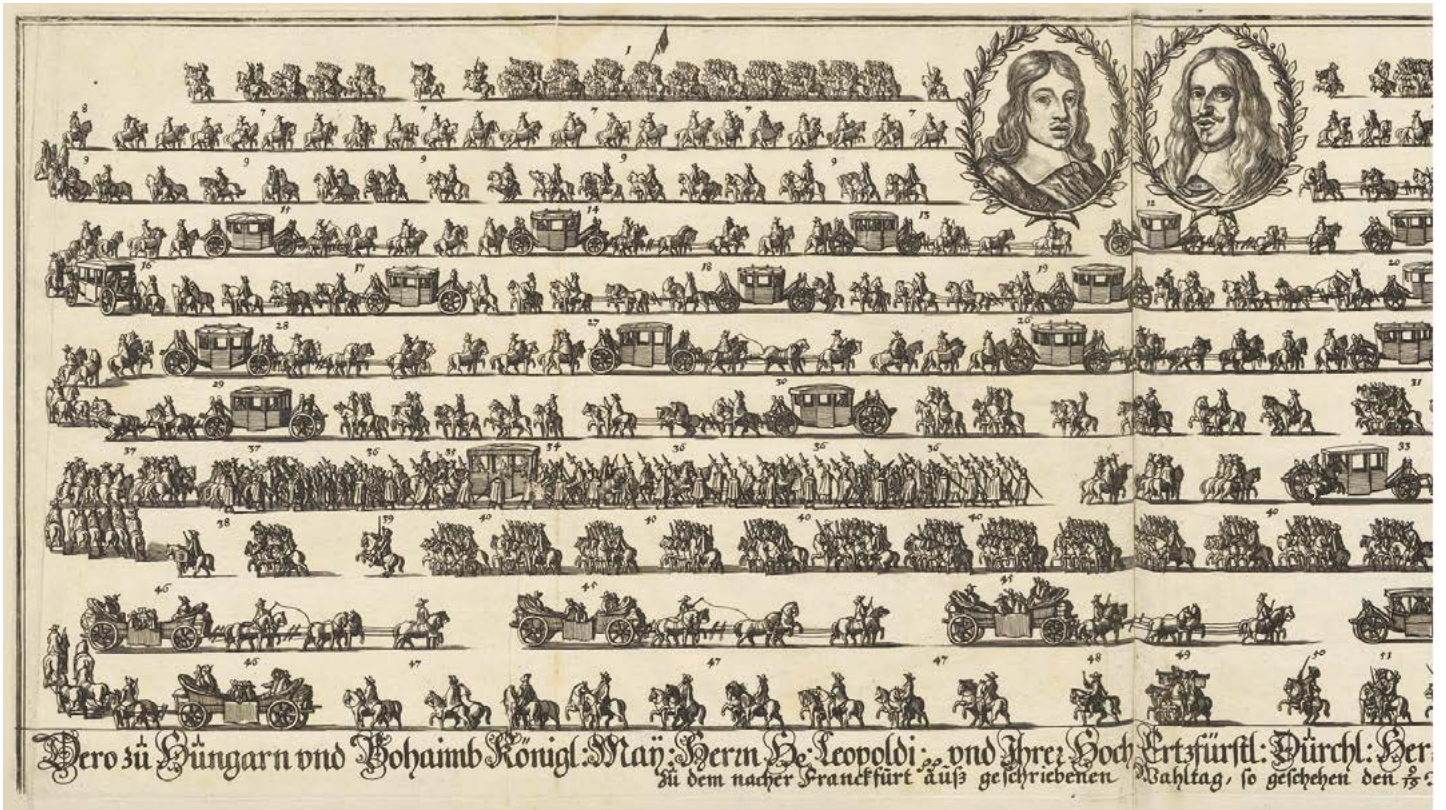 1
8 7 7 7 7 7
9 9 9 9 9
15 14 13 12
16 17 18 19 20
28 27 26
29 30 31
37 37 36 35 34 36 36 36 33
38 39 40 40 40 40 40
46 45 45
46 47 47 47 48 49 50 51
Dero zů Hüngarn vnd Bohaimb Königl: Maÿ: Herrn Leopoldi vnd Ihrer Hoch Ertzfürstl: Dürchl: Her
zů dem nacher Franckfürt aüß geschriebenen Wahltag, so geschehen den 9/19